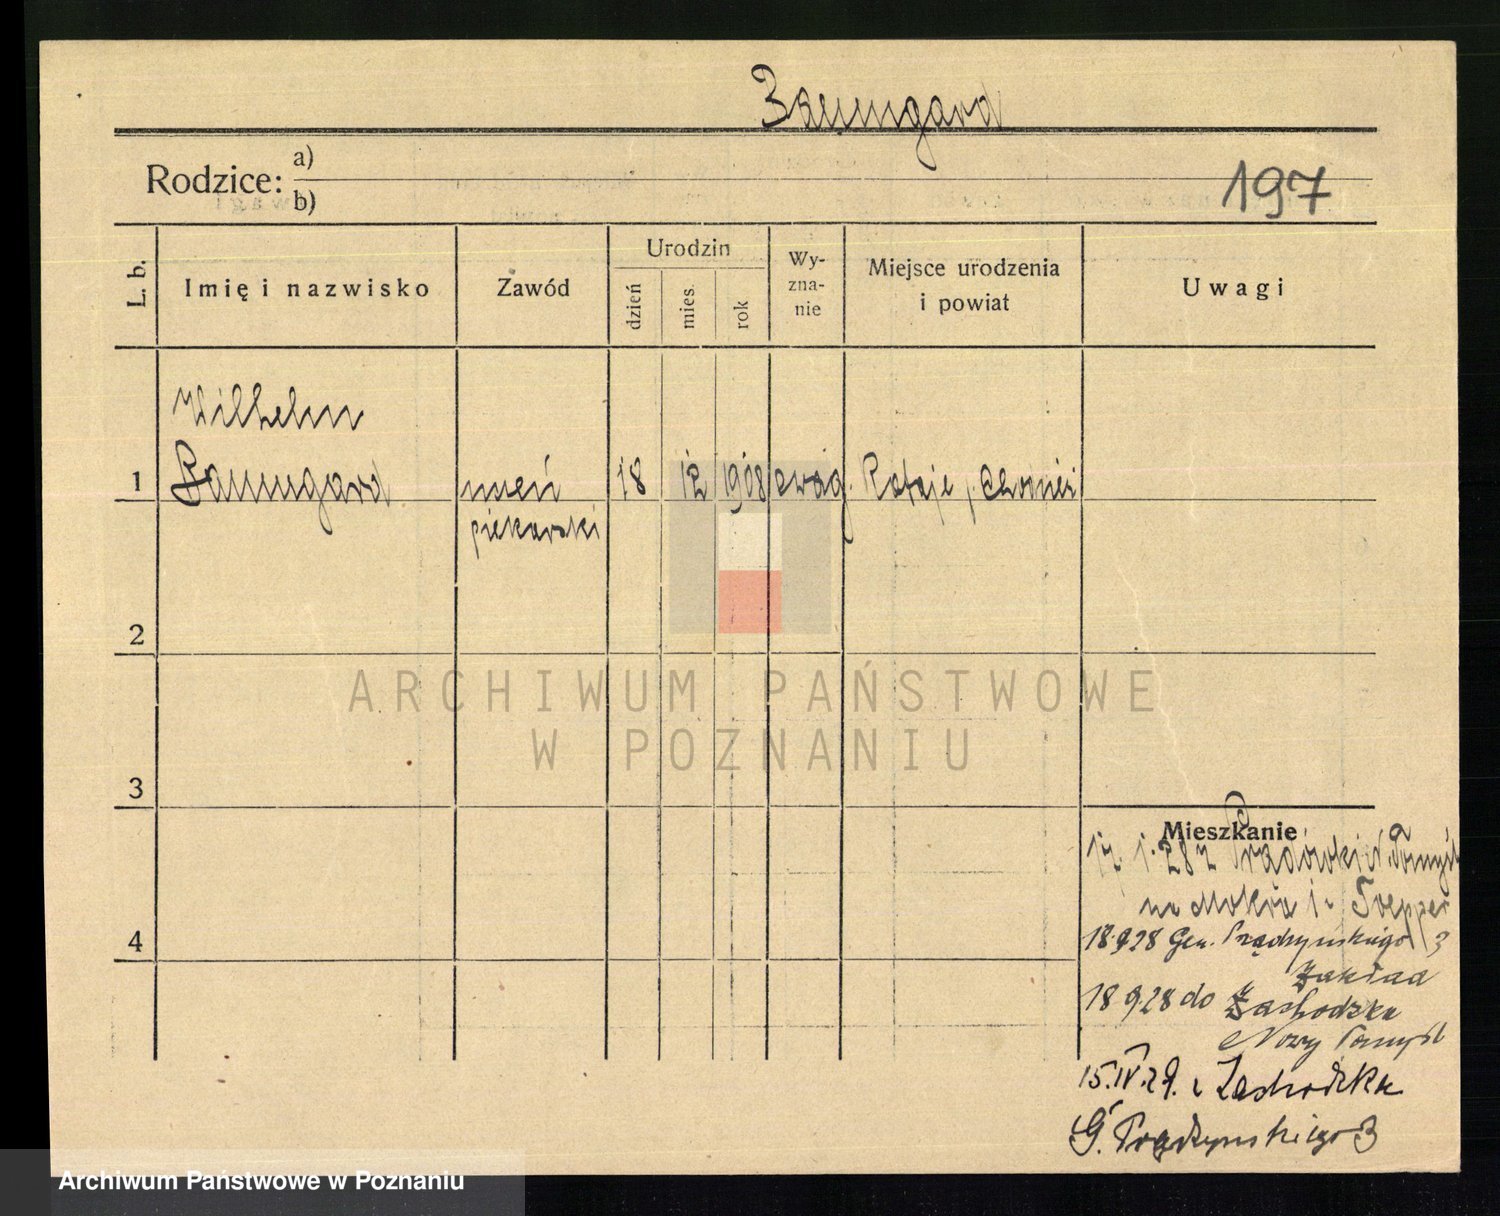 Baumgard
Rodzice: a)
b)
197
L. b.
Imię i nazwisko
Zawód
Urodzin
dzień
mies.
rok
Wy-
zna-
nie
Miejsce urodzenia
i powiat
Uwagi
Wilhelm
1 Baumgard uczeń 18 12 1908 ewag. Rataje, Chodzież
piekarski
2
ARCHIWUM PAŃSTWOWE
W POZNANIU
3
Mieszkanie
17. 1. 28 z N. Tomyśl
na Mokra 1 Toepper
4
18.9.28 Gen. Prądzyńskiego 3
18 9.28 do Zachodzka
Nowy Tomyśl
15.IV.29. z Zachodzka
G. Prądzynskiego 3
Archiwum Państwowe w Poznaniu